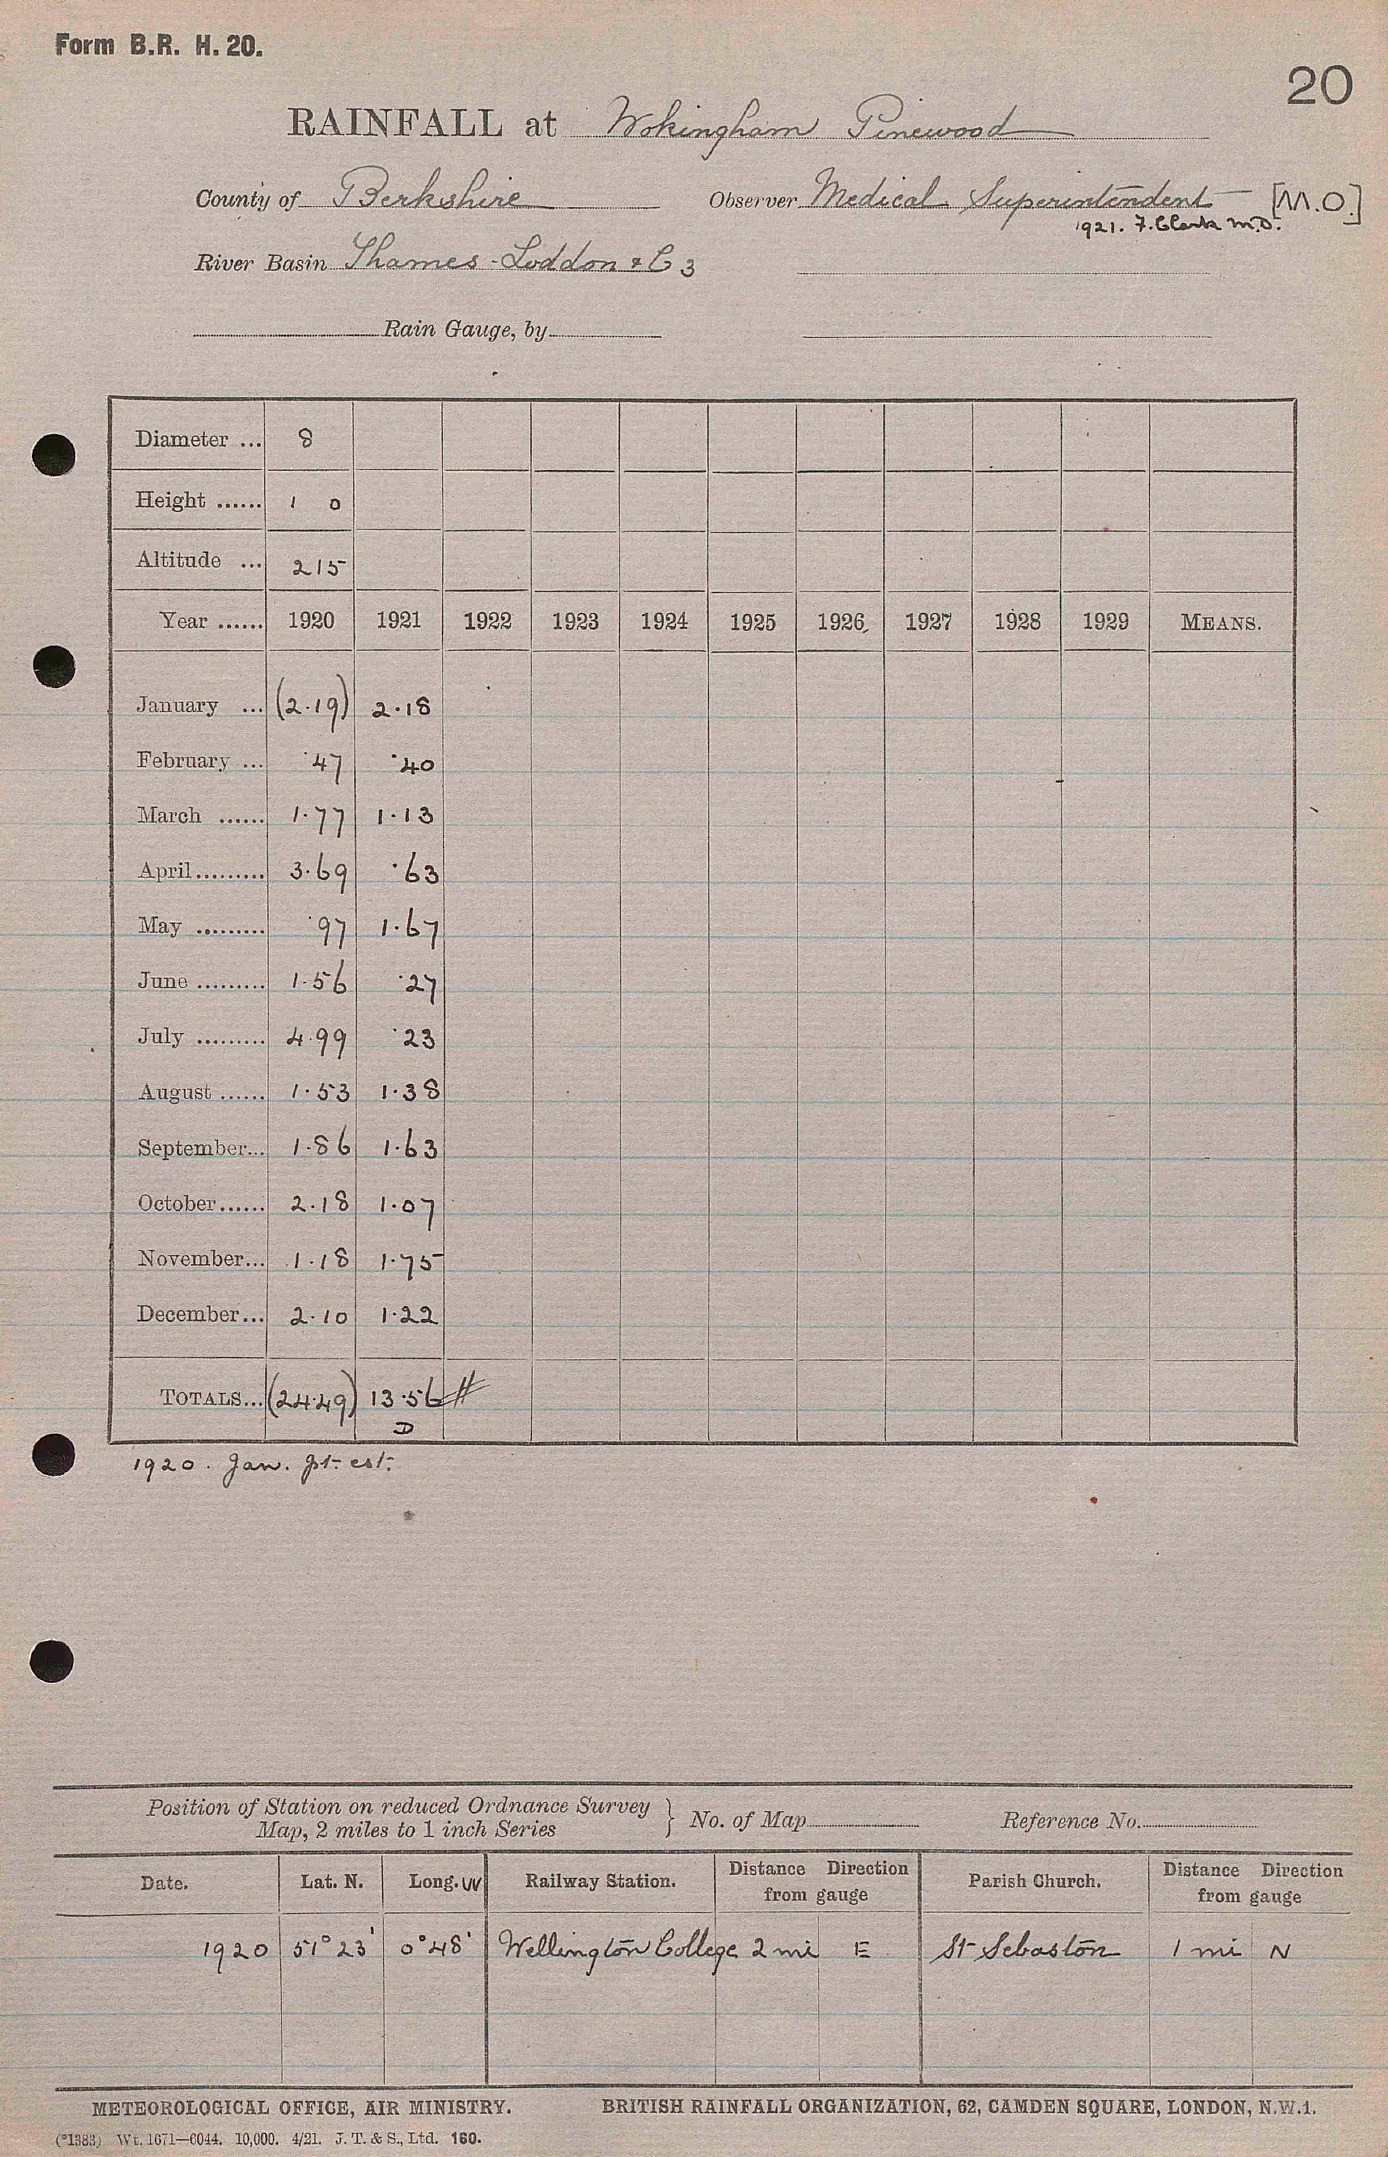 Form B.R. H. 20.
20
RAINFALL at Wokingham Pinewood
County of Berkshire Observer Medical Superintendent [M.O.]
1921. F. Clark M.D.
River Basin Thames - Loddon & C 3
Rain Gauge, by
Diameter ... 8
Height ...... 1 0
Altitude ... 215
Year ...... 1920 1921 1922 1923 1924 1925 1926 1927 1928 1929 MEANS.
January ... (2.19) 2.18
February ... .47 .40
March ...... 1.77 1.13
April ......... 3.69 .63
May ......... .97 1.67
June ......... 1.56 .27
July ......... 4.99 .23
August ...... 1.53 1.38
September... 1.86 1.63
October ...... 2.18 1.07
November... 1.18 1.75
December... 2.10 1.22
TOTALS... (24.49) 13.56 #
D
1920. Jan. pt. est.
Position of Station on reduced Ordnance Survey
Map, 2 miles to 1 inch Series } No. of Map Reference No.
Date. Lat. N. Long. W Railway Station. Distance Direction from gauge Parish Church. Distance Direction from gauge
1920 51° 23' 0° 48' Wellington College 2 mi E St Sebaston 1 mi N
METEOROLOGICAL OFFICE, AIR MINISTRY. BRITISH RAINFALL ORGANIZATION, 62, CAMDEN SQUARE, LONDON, N.W.1.
(*1383) Wt. 1671—6044. 10,000. 4/21. J. T. & S., Ltd. 160.